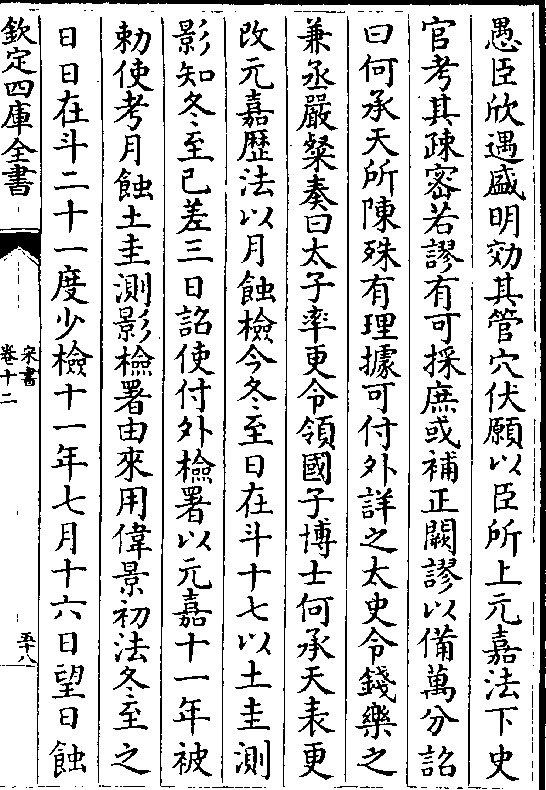 愚臣欣遇盛明効其管穴伏願以臣所上元嘉法下史
官考其疎宻若謬有可採庶或補正闕謬以備萬分詔
曰何承天所陳殊有理據可付外詳之太史令錢樂之
兼丞嚴粲奏曰太子率更令領國子博士何承天表更
改元嘉歴法以月蝕檢今冬至日在斗十七以土圭測
影知冬至已差三日詔使付外檢署以元嘉十一年被
勅使考月蝕土圭測影檢署由來用偉景初法冬至之
日日在斗二十一度少檢十一年七月十六日望日蝕
欽定四庫全書
宋書
卷十二
五十八